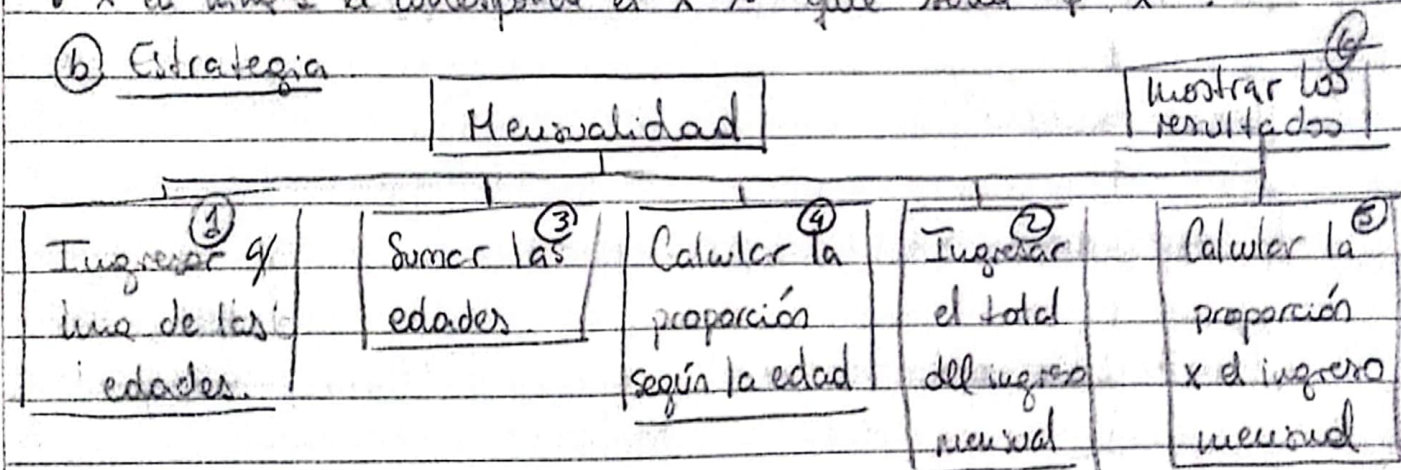 b) Estrategia
Mensualidad
6
Mostrar los
resultados
1
Ingresar c/
una de las
edades.
3
Sumar las
edades.
4
Calcular la
proporción
según la edad
2
Ingresar
el total
del ingreso
mensual
5
Calcular la
proporción
x el ingreso
mensual